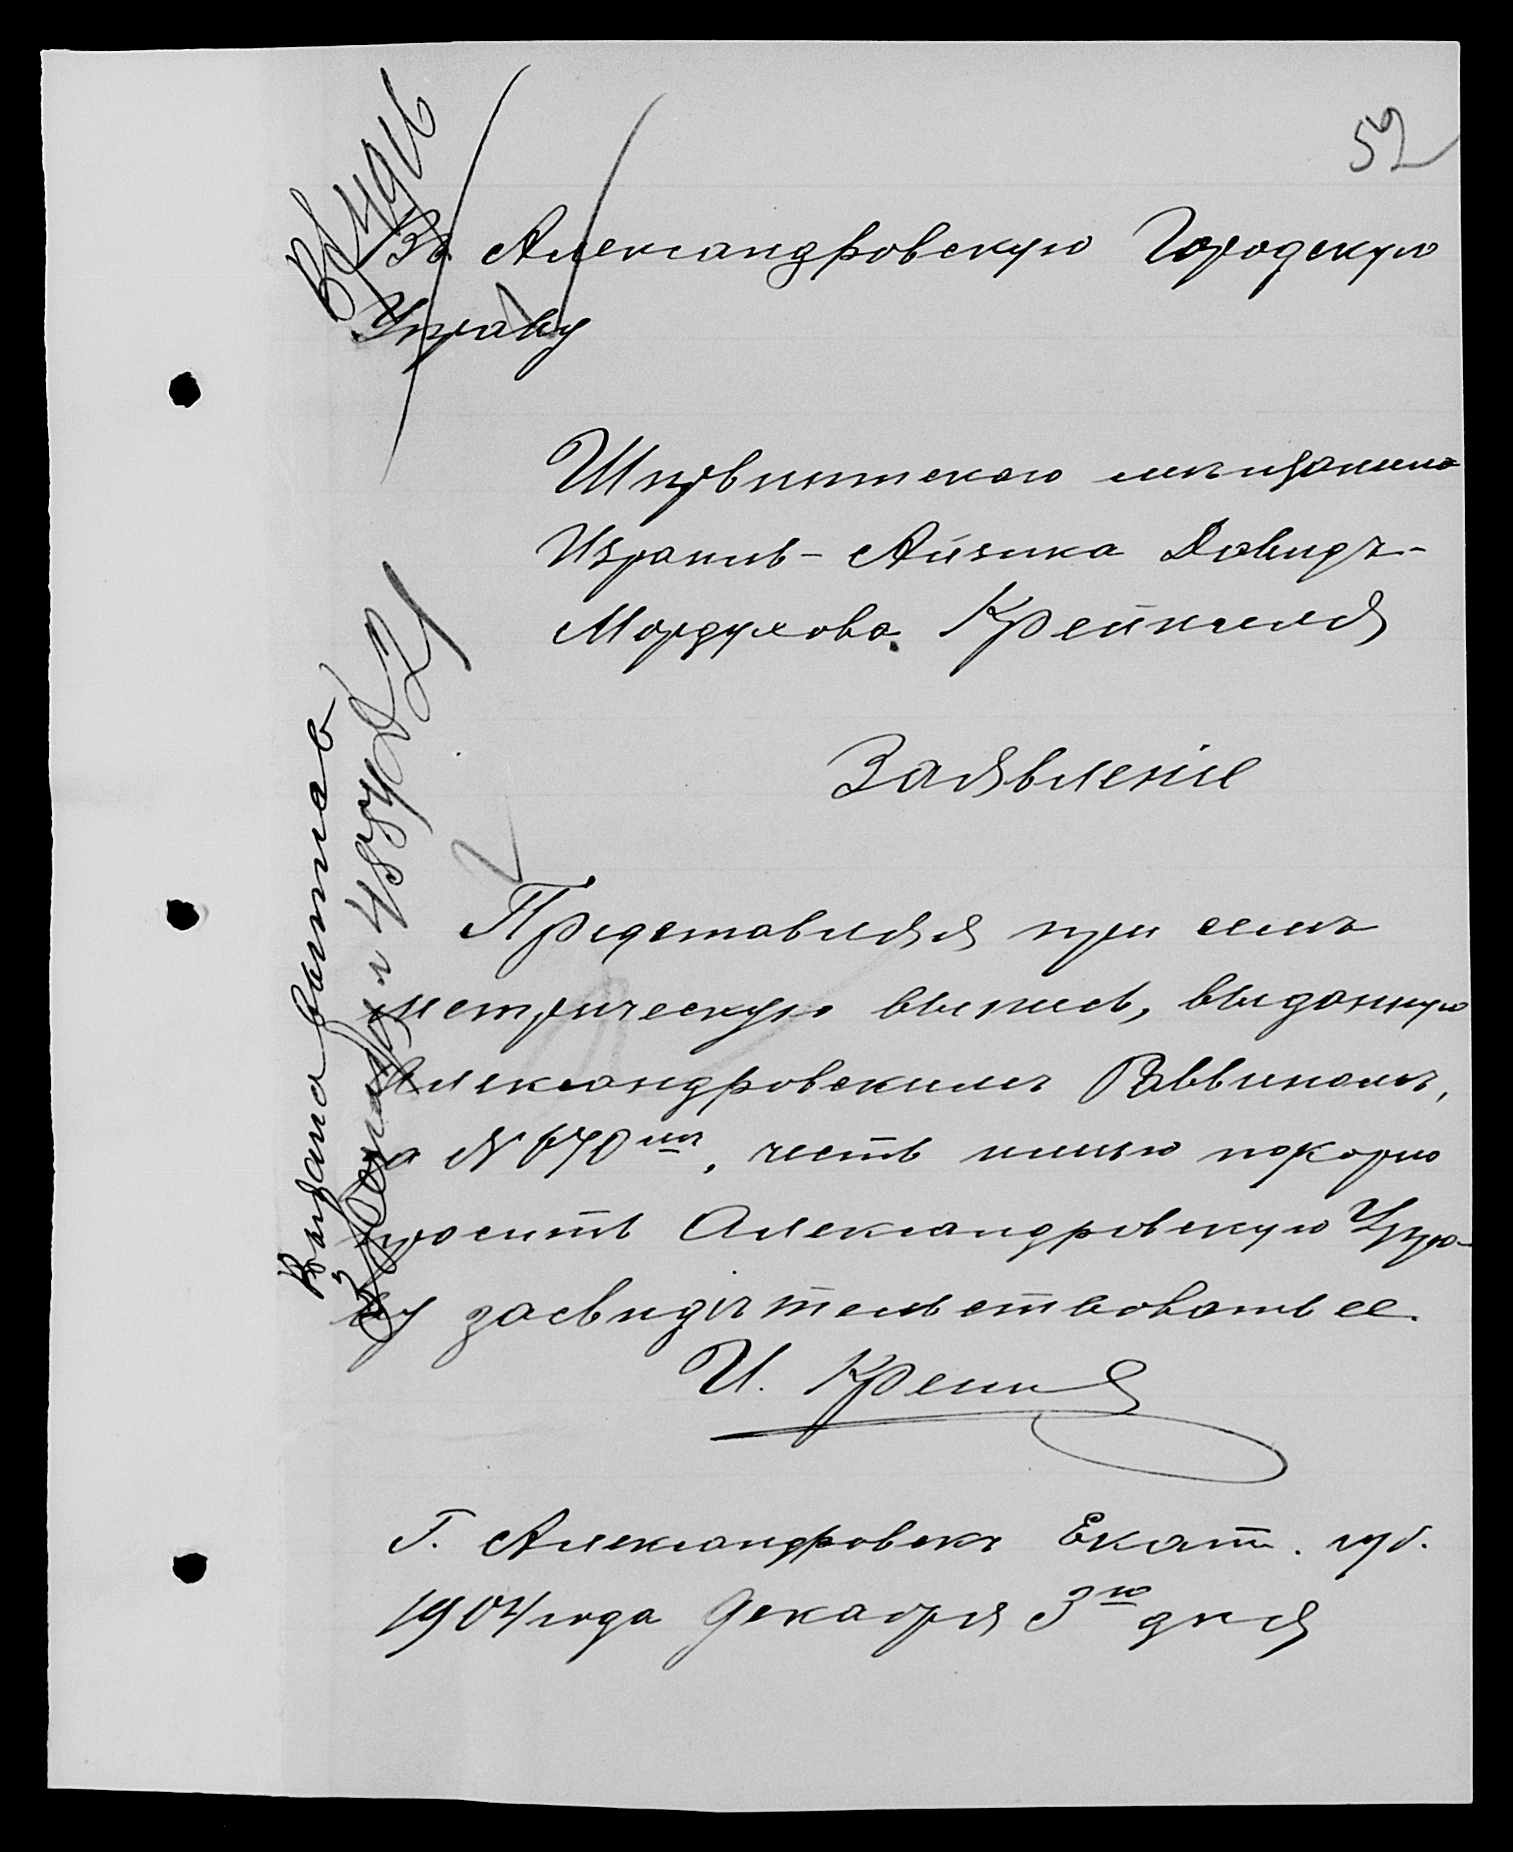 52
Въ Александровскую Городскую
Управу
мѣщанина
Израиль-Айзика Давидъ-
Мордухова Крейнеля
Заявленіе
Представляя при семъ
метрическую выпись, выданную
Александровскимъ Раввиномъ,
за № 670, честь имѣю покорно
просить Александровскую Упра-
ву засвидѣтельствовать ее.
И. Крейн
Г. Александровскъ Екат. губ.
1904 года Декабря 3го дня
Выдано